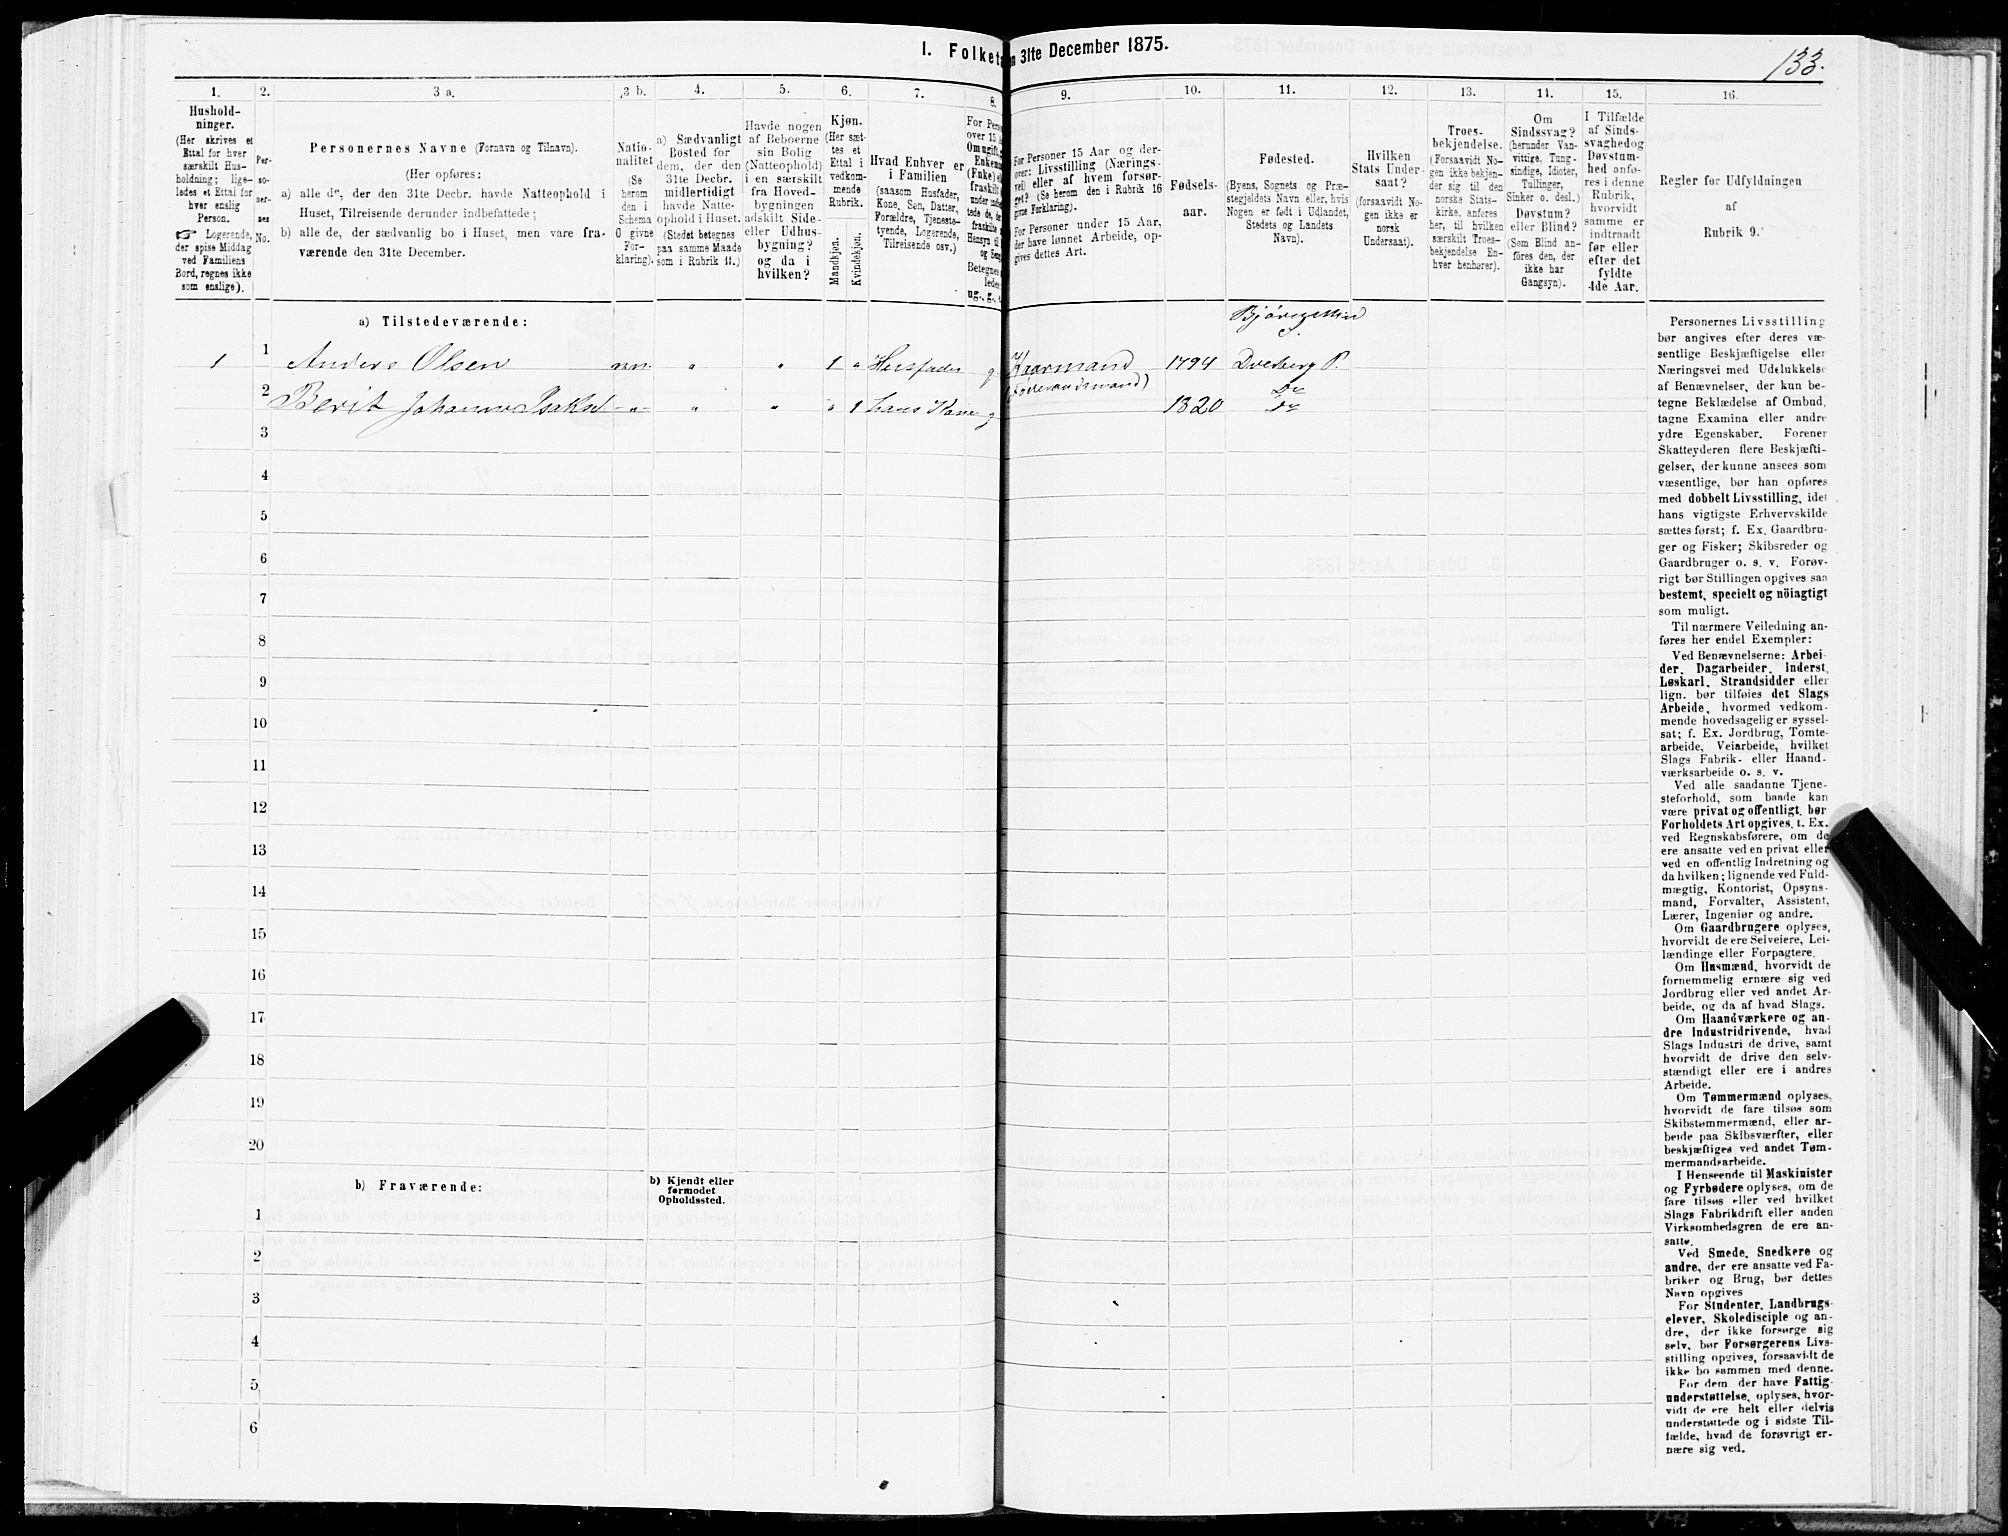 I. Folketa
n 31te December 1875.
133.
1.
2.
3 a.
3 b.
4.
5.
6.
7.
8.
9.
10.
11.
12.
13.
14.
15.
16.
Hushold-
ninger.
(Her skrives et
Ettal for hver
særskilt Hus-
holdning; lige-
ledes et Ettal for
hver enslig
Person.
☞ Logerende,
der spise Middag
ved Familiens
Bord, regnes ikke
som enslige).
Per-
so-
ner-
nes
No.
Personernes Navne (Fornavn og Tilnavn).
(Her opføres:
a) alle de, der den 31te Decbr. havde Natteophold i
Huset, Tilreisende derunder indbefattede;
b) alle de, der sædvanlig bo i Huset, men vare fra-
værende den 31te December.
Natio-
nalitet
(Se
herom
den i
Schema
O givne
For-
klaring).
a) Sædvanligt
Bosted for
dem, der den
31te Decbr.
midlertidigt
havde Natte-
ophold i Huset.
(Stedet betegnes
paa samme Maade
som i Rubrik 11.)
Havde nogen
af Beboerne
sin Bolig
(Natteophold)
i en særskilt
fra Hoved-
bygningen
adskilt Side-
eller Udhus-
bygning?
og da i
hvilken?
Kjøn.
(Her sæt-
tes et
Ettal i
vedkom-
mende
Rubrik.
Mandkjøn.
Kvindekjøn.
Hvad Enhver er
i Familien
(saasom Husfader,
Kone, Søn, Datter,
Forældre, Tjeneste-
tyende, Logerende,
Tilreisende osv.)
For Perso
over 15 A
Om ugift, g
Enkem
(Enke) e
fraskilt
Hensyn til
og Seng
Betegnes
lede
ug., g., e
For Personer 15 Aar og der-
over: Livsstilling (Nærings-
vei) eller af hvem forsør-
get? (Se herom den i Rubrik 16
givne Forklaring).
For Personer under 15 Aar,
der have lønnet Arbeide, op-
gives dettes Art.
Fødsels-
aar.
Fødested.
(Byens, Sognets og Præ-
stegjeldets Navn eller, hvis
Nogen er født i Udlandet,
Stedets og Landets
Navn).
Hvilken
Stats Under-
saat?
(forsaavidt No-
gen ikke er
norsk
Undersaat).
Troes-
bekjendelse.
(Forsaavidt No-
gen ikke bekjen-
der sig til den
norske Stats-
kirke, anføres
her, til hvilken
særskilt Troes-
bekjendelse En-
hver henhører).
Om
Sindssvag?
(herunder Van-
vittige, Tung-
sindige, Idioter,
Tullinger,
Sinker o. desl.)
Døvstum?
eller Blind?
(Som Blind an-
føres den, der
ikke har
Gangsyn).
I Tilfælde
af Sinds-
svaghed og
Døvstum-
hed anfø-
res i denne
Rubrik,
hvorvidt
samme er
indtraadt
før eller
efter det
fyldte
4de Aar.
Regler for Udfyldningen
af
Rubrik 9.
a) Tilstedeværende:
1 1 Anders Olsen nn. „ „ 1 „ Husfader g Kaarmand 1794 Dverberg P.
2 Berit Johanna Isaksd -„- „ „ „ 1 hans Kone g 1820 Do Do
3
4
5
6
7
8
9
10
11
12
13
14
15
16
17
18
19
20
b) Fraværende:
b) Kjendt eller
formodet
Opholdssted.
1
2
3
4
5
6
Personernes Livsstilling
bør angives efter deres væ-
sentlige Beskjæftigelse eller
Næringsvei med Udelukkelse
af Benævnelser, der kun be-
tegne Beklædelse af Ombud,
tagne Examina eller andre
ydre Egenskaber. Forener
Skatteyderen flere Beskjæfti-
gelser, der kunne ansees som
væsentlige, bør han opføres
med dobbelt Livsstilling, idet
hans vigtigste Erhvervskilde
sættes først; f. Ex. Gaardbru-
ger og Fisker; Skibsreder og
Gaardbruger o. s. v. Forøv-
rigt bør Stillingen opgives saa
bestemt, specielt og nöiagtigt
som muligt.
Til nærmere Veiledning an-
føres her endel Exempler:
Ved Benævnelserne: Arbei-
der, Dagarbeider, Inderst,
Løskarl, Strandsidder eller
lign. bør tilføies det Slags
Arbeide, hvormed vedkom-
mende hovedsagelig er syssel-
sat; f. Ex. Jordbrug, Tomte-
arbeide, Veiarbeide, hvilket
Slags Fabrik- eller Haand-
værksarbeide o. s. v.
Ved alle saadanne Tjene-
steforhold, som baade kan
være privat og offentligt, bør
Forholdets Art opgives, t. Ex.
ved Regnskabsførere, om de
ere ansatte ved en privat eller
ved en offentlig Indretning og
da hvilken; lignende ved Fuld-
mægtig, Kontorist, Opsyns-
mand, Forvalter, Assistent,
Lærer, Ingeniør og andre.
Om Gaardbrugere oplyses,
hvorvidt de ere Selveiere, Lei-
lændinge eller Forpagtere.
Om Husmænd, hvorvidt de
fornemmelig ernære sig ved
Jordbrug eller ved andet Ar-
beide, og da af hvad Slags.
Om Haandværkere og an-
dre Industridrivende, hvad
Slags Industri de drive, samt
hvorvidt de drive den selv-
stændigt eller ere i andres
Arbeide.
Om Tømmermænd oplyses,
hvorvidt de fare tilsøs som
Skibstømmermænd, eller ar-
beide paa Skibsværfter, eller
beskjæftiges ved andet Tøm-
mermandsarbeide.
I Henseende til Maskinister
og Fyrbødere oplyses, om de
fare tilsøs eller ved hvilket
Slags Fabrikdrift eller anden
Virksomhedsgren de ere an-
satte.
Ved Smede, Snedkere og
andre, der ere ansatte ved Fa-
briker og Brug, bør dettes
Navn opgives
For Studenter, Landbrugs-
elever, Skoledisciple og an-
dre, der ikke forsørge sig
selv, bør Forsørgerens Livs-
stilling opgives, forsaavidt de
ikke bo sammen med denne.
For dem, der have Fattig-
understøttelse, oplyses, hvor-
vidt de ere helt eller delvis
understøttede og i sidste Til-
fælde, hvad de forøvrigt er-
nære sig ved.